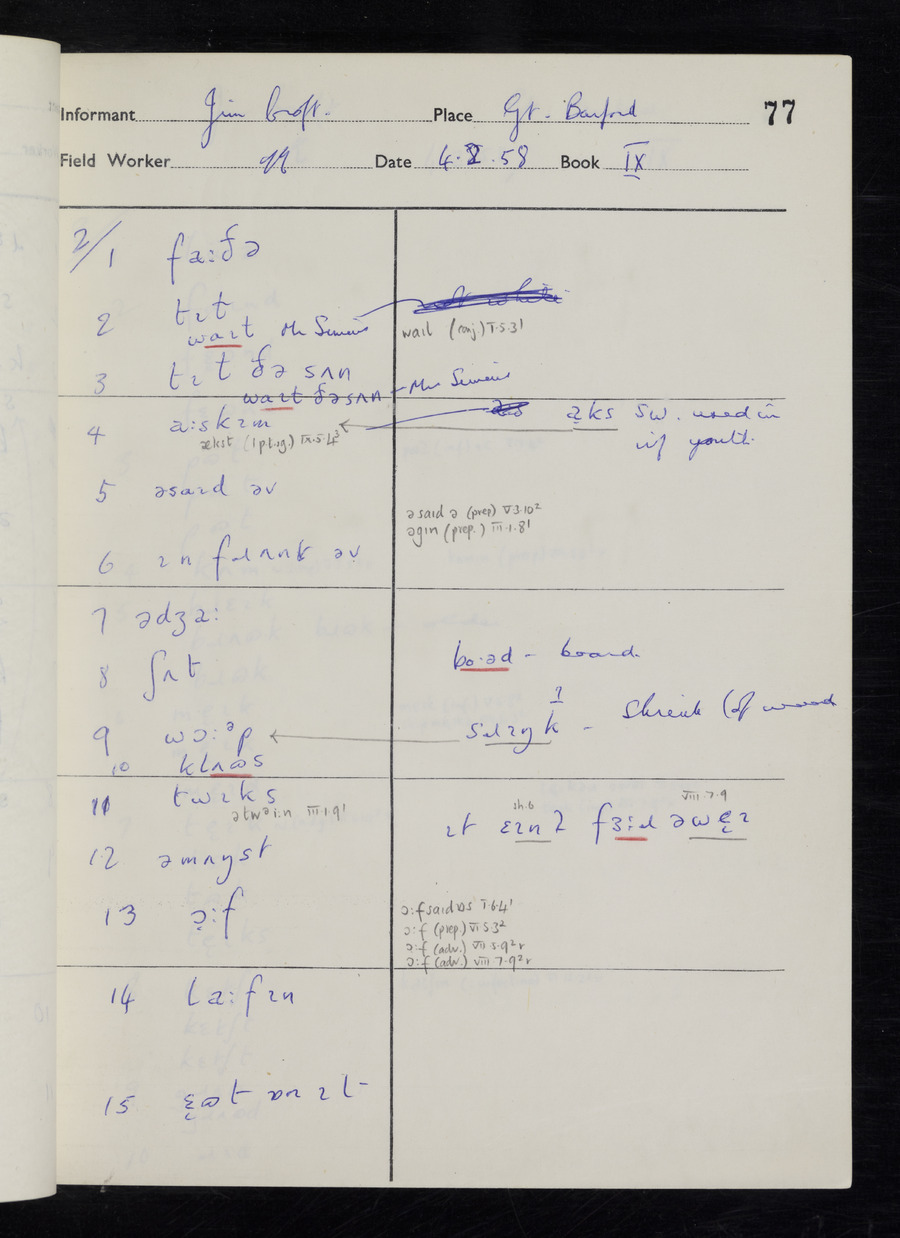 Informant Jim Croft. Place Gt. Barford 77
Field Worker Date 4.2.58 Book IX
2/1 fa:ðə
2 tɪt
waɪt Mr
wail (conj.) V.5.3¹
3 tɪt ðə sʌn
waɪt ðəsʌn – Mr
4 a:skɪm ← aks s.w. used in
youth.
ækst (1 p.t.sg.) IX.5.4³
5 əsaɪd əv
əsaid ə (prep) V.3.10²
əgɪn (prep.) III.1.8¹
6 ɪn fɹʌnt əv
7 ədʒa:
8 ʃʌt
bo·əd – board.
9 wɔ:ᵊp ← sɹɪŋk – shrink (of wood
10 klʌɷs
11 twɪks
ətwəi:n III.1.9¹
sh.6 VIII.7.9
ɪt ɛɪnʔ fɜ:ɹ əwɛɪ
12 əmʌŋst
13 ɔ:f
ɔ:fsaidɒs I.6.4¹
ɔ:f (prep.) VI.5.3²
ɔ:f (adv.) VII.5.9² r
ɔ:f (adv.) VIII.7.9² r
14 la:fɪn
15 ɛɷt ɒn ɪt